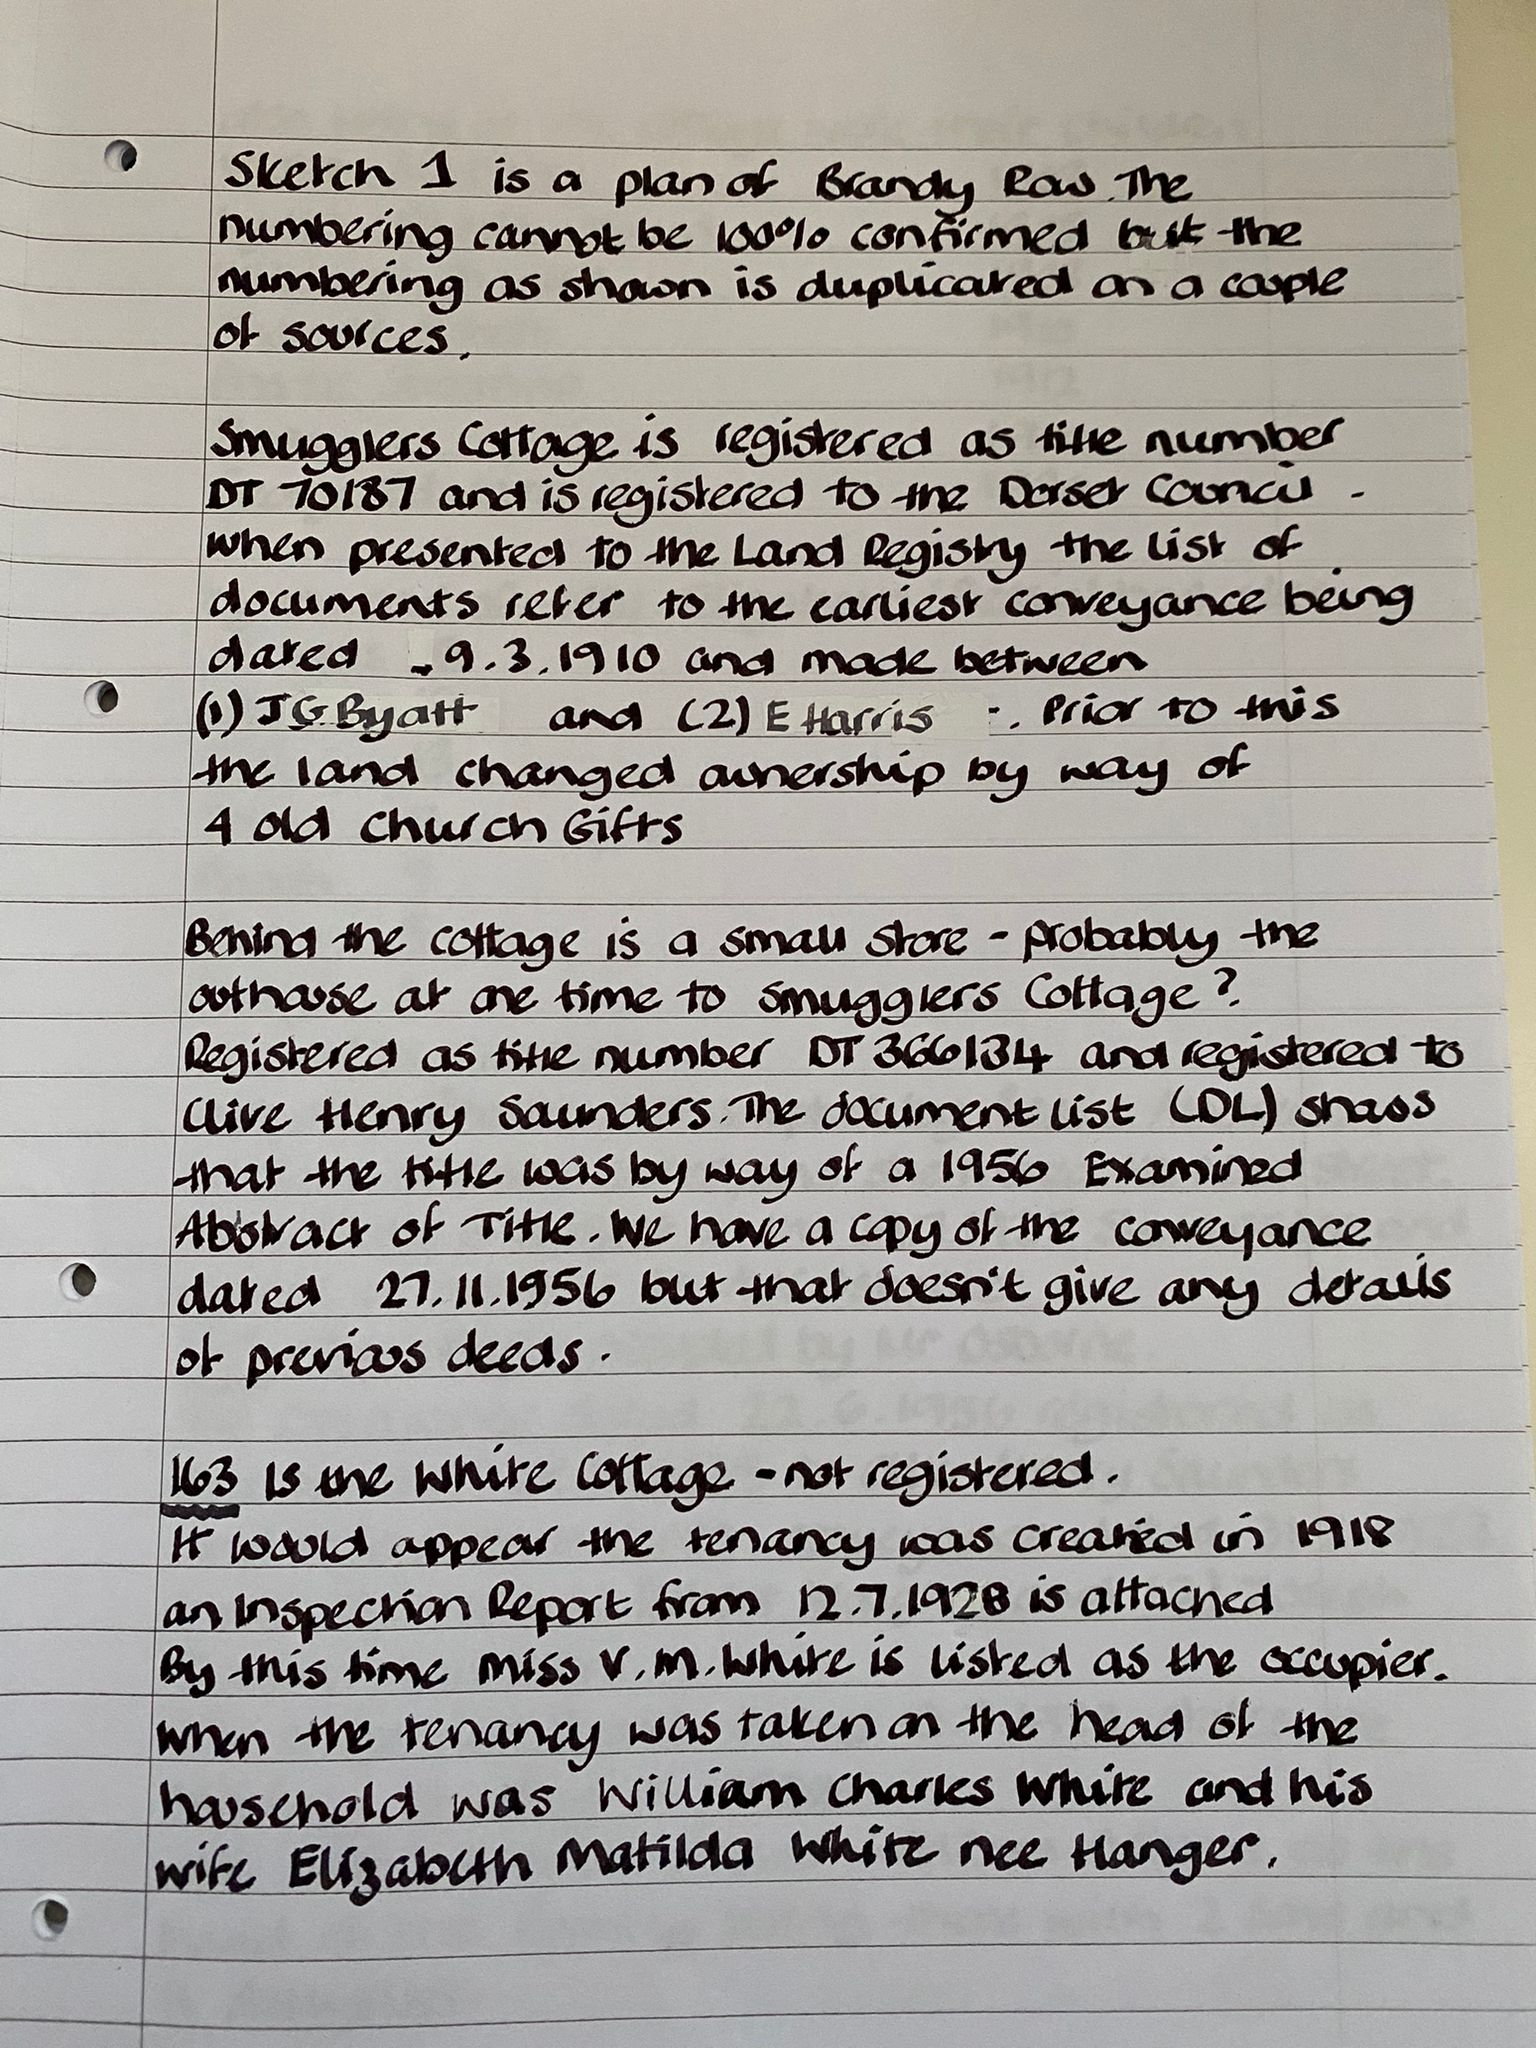 Sketch 1 is a plan of Brandy Row. The
numbering cannot be 100% confirmed but the
numbering as shown is duplicated on a couple
of sources.
Smugglers Cottage is registered as title number
DT 70187 and is registered to the Dorset Council.
When presented to the Land Registry the list of
documents refer to the earliest conveyance being
dated 9.3.1910 and made between
(1) J G Byatt and (2) E Harris. Prior to this
the land changed ownership by way of
4 old Church Gifts
Behind the cottage is a small store - probably the
outhouse at one time to Smugglers Cottage?.
Registered as title number DT 366134 and registered to
Clive Henry Saunders. The document list (DL) shows
that the title was by way of a 1956 Examined
Abstract of Title. We have a copy of the conveyance
dated 27.11.1956 but that doesn't give any details
of previous deeds.
163 Is the White Cottage - not registered.
It would appear the tenancy was created in 1918
an Inspection Report from 12.7.1928 is attached
By this time Miss V.M. White is listed as the occupier.
When the tenancy was taken on the head of the
household was William Charles White and his
wife Elizabeth Matilda White nee Hanger.